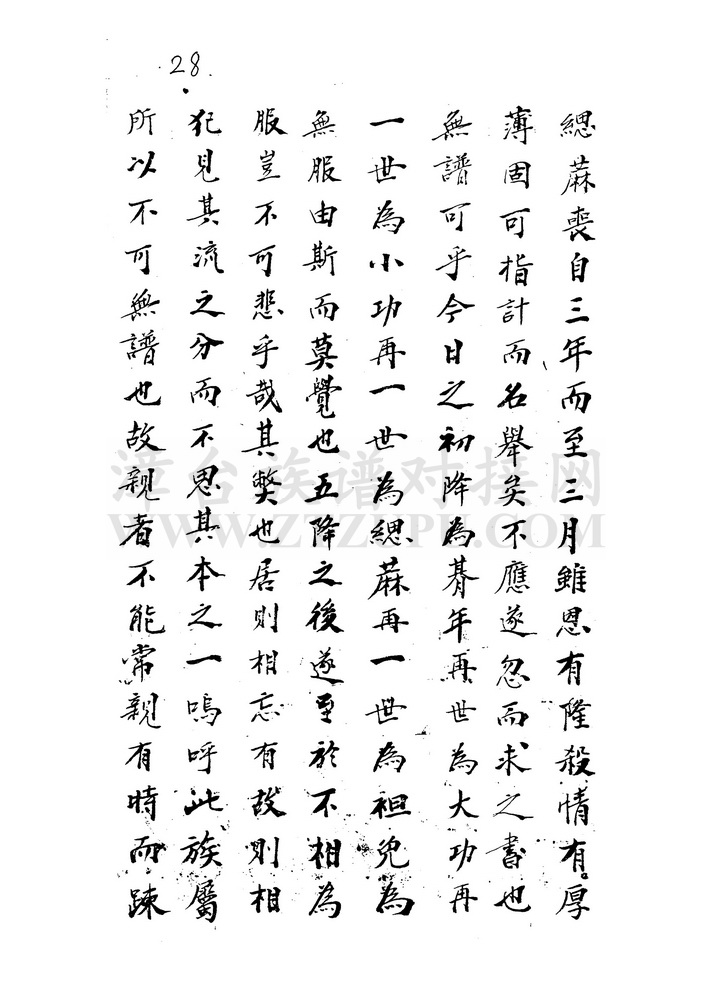 28.
緦蔴喪自三年而至三月雖恩有隆殺情有厚
薄固可指計而名舉矣不應遂忽而求之書也
無譜可乎今日之初降為朞年再世為大功再
一世為小功再一世為緦蔴再一世為袒免為
無服由斯而莫覺也五降之後遂至於不相為
服豈不可悲乎哉其獘也居則相忘有故則相
犯見其流之分而不思其本之一嗚呼此族屬
所以不可無譜也故親者不能常親有時而踈
漳台族谱对接网
WWW.ZTZUPU.COM